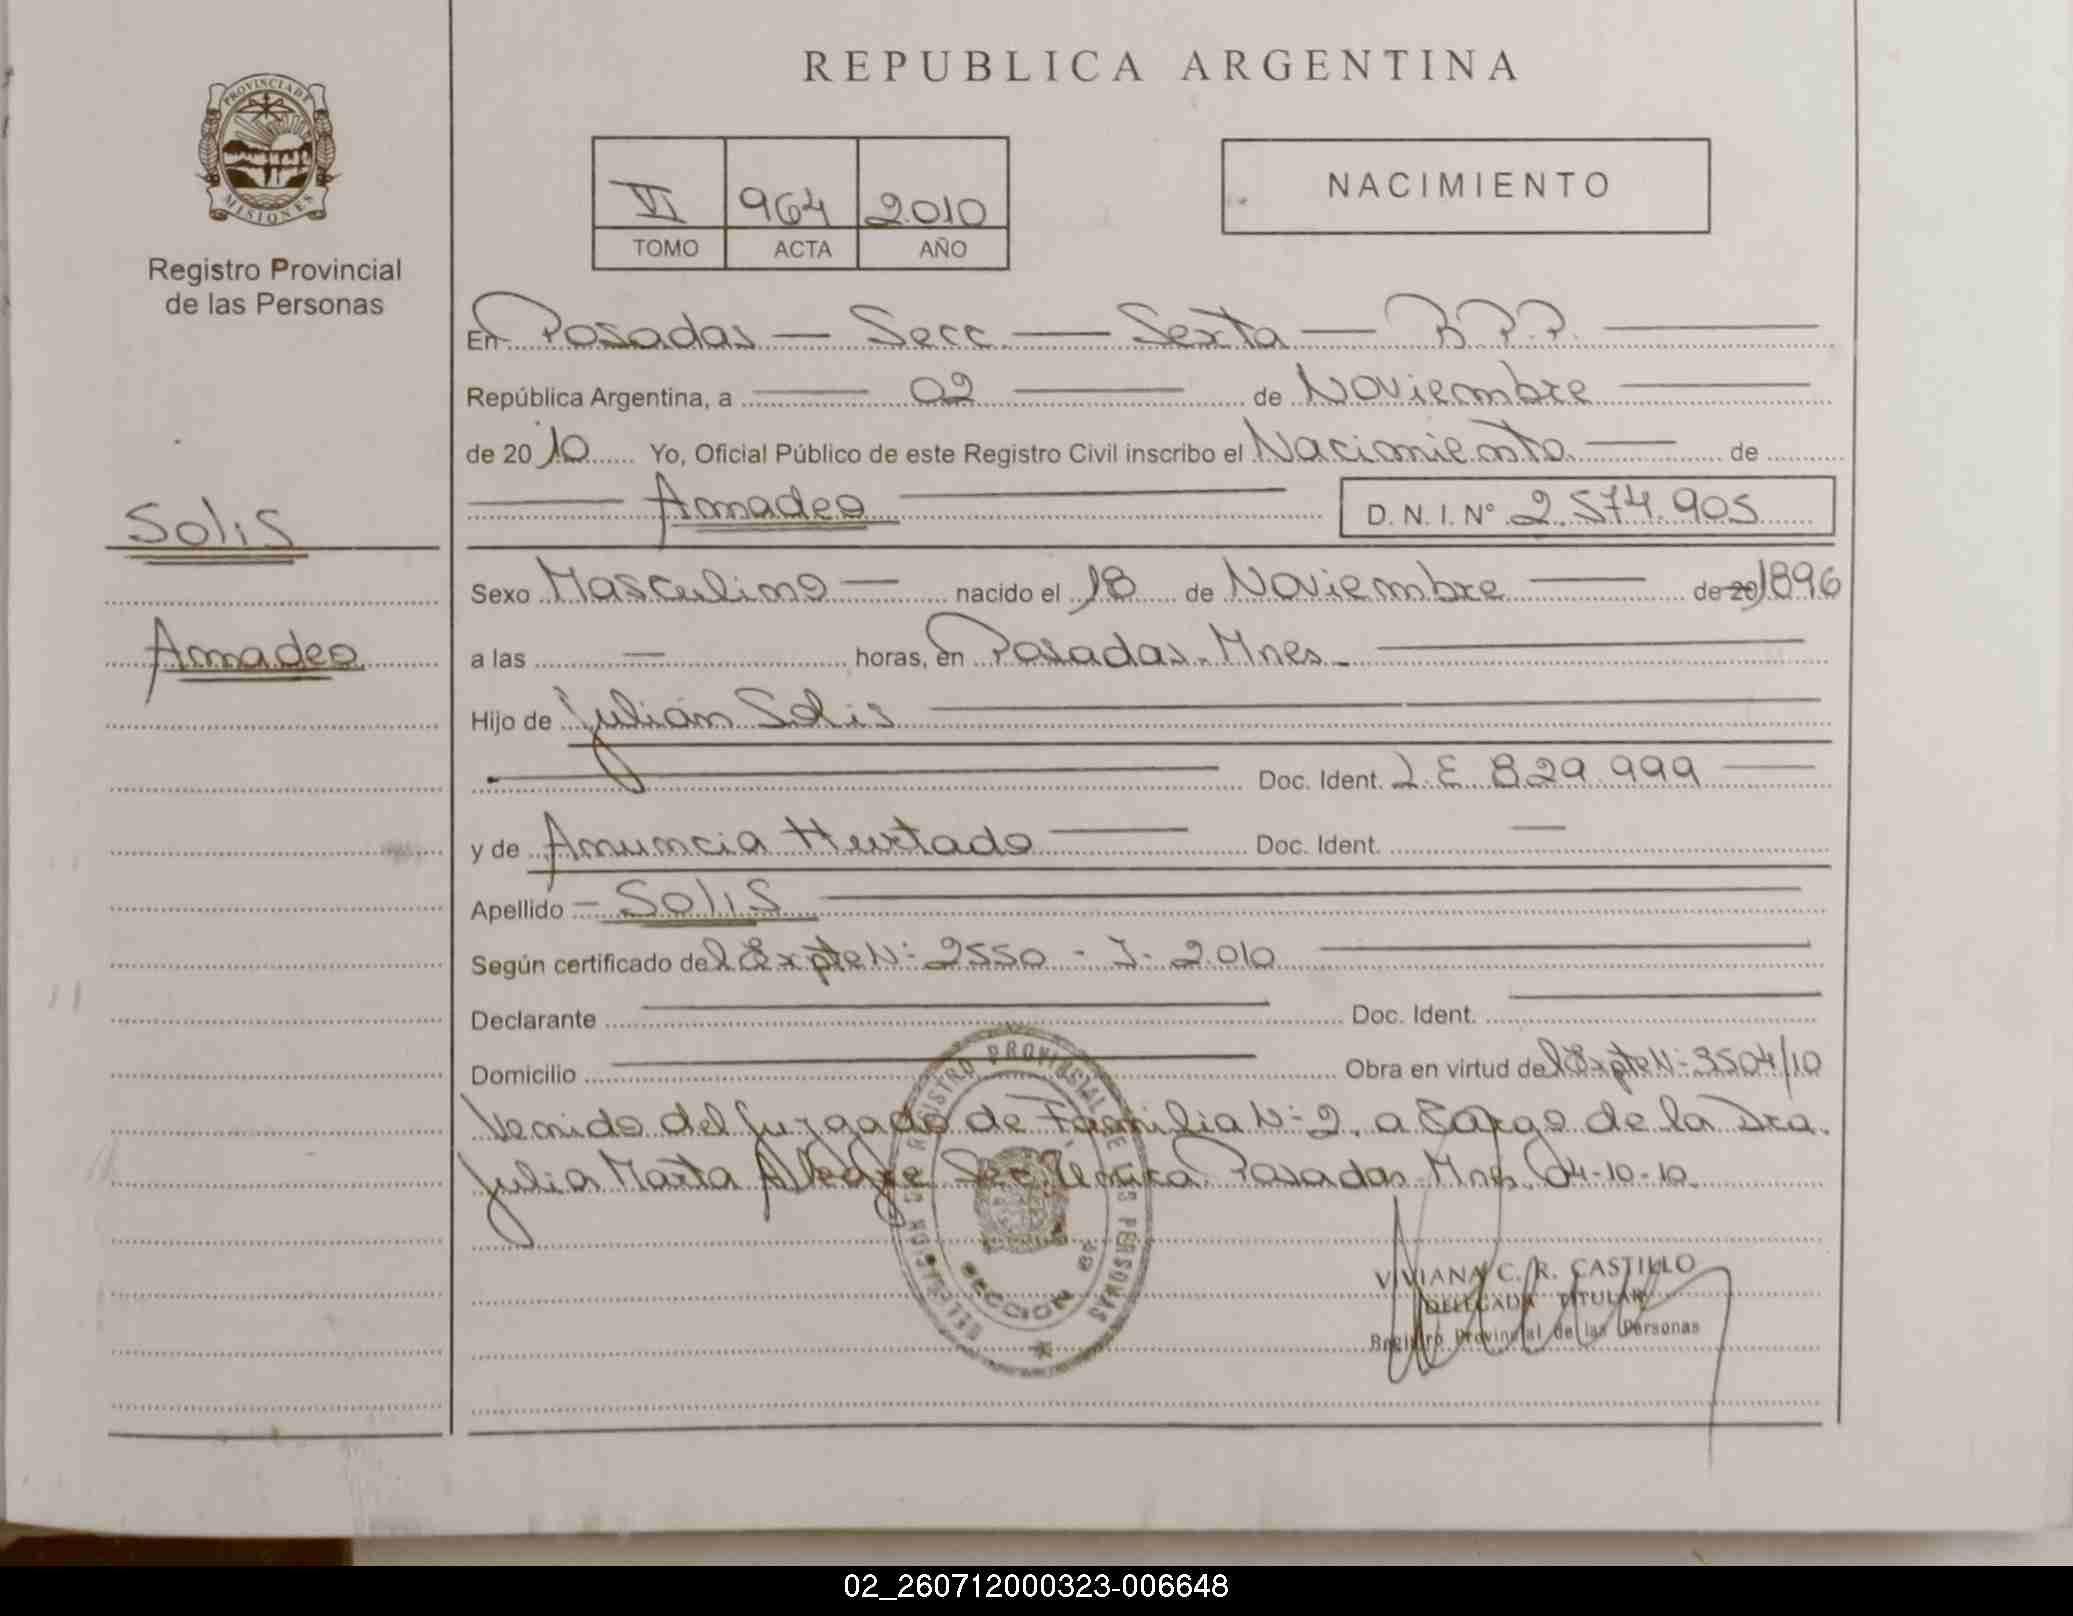 REPUBLICA ARGENTINA
PROVINCIA DE
MISIONES
Registro Provincial
de las Personas
VI 964 2010
TOMO ACTA AÑO
NACIMIENTO
En Posadas — Secc — Sexta —
República Argentina, a — 02 — de Noviembre —
de 2010 Yo, Oficial Público de este Registro Civil inscribo el Nacimiento — de
— Amadeo — D.N.I. N° 2.574.905
Solis
Amadeo
Sexo Masculino — nacido el 18 de Noviembre — de 20 1896
a las — horas, en Posadas. Mnes. —
Hijo de Julián Solis —
— Doc. Ident. L.E 829.999 —
y de Anuncia Hurtado — Doc. Ident. —
Apellido — Solis —
Según certificado del Expte N: 2550 - J - 2010 —
Declarante — Doc. Ident. —
Domicilio — Obra en virtud del Expte N: 3504/10
Venido del Juzgado de Familia N: 2. a Cargo de la Dra.
Julia Marta Alegre Sec. Única Posadas. Mnes. 04-10-10.
REGISTRO PROVINCIAL DE LAS PERSONAS
DELEGACION
SECCION 6ª
VIVIANA C. R. CASTILLO
DELEGADA TITULAR
Registro Provincial de las Personas
02_260712000323-006648